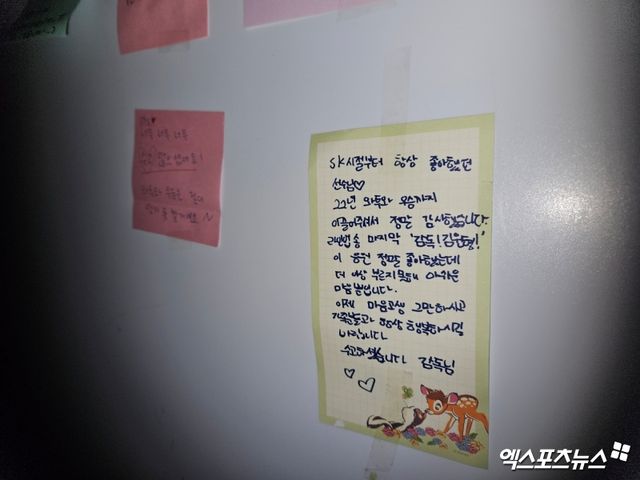 너무 너무 너무
SK시절부터 항상 좋아했던
선수님♡
22년 와투와 우승까지
이끌어주셔서 정말 감사했습니다
라인업송 마지막 "감독! 김원형!"
이 응원 정말 좋아했는데
더 이상 부르지 못해 아쉬운
마음뿐입니다.
이제 마음고생 그만하시고
가족분들과 항상 행복하시길
바랍니다
수고하셨습니다 감독님
엑스포츠뉴스